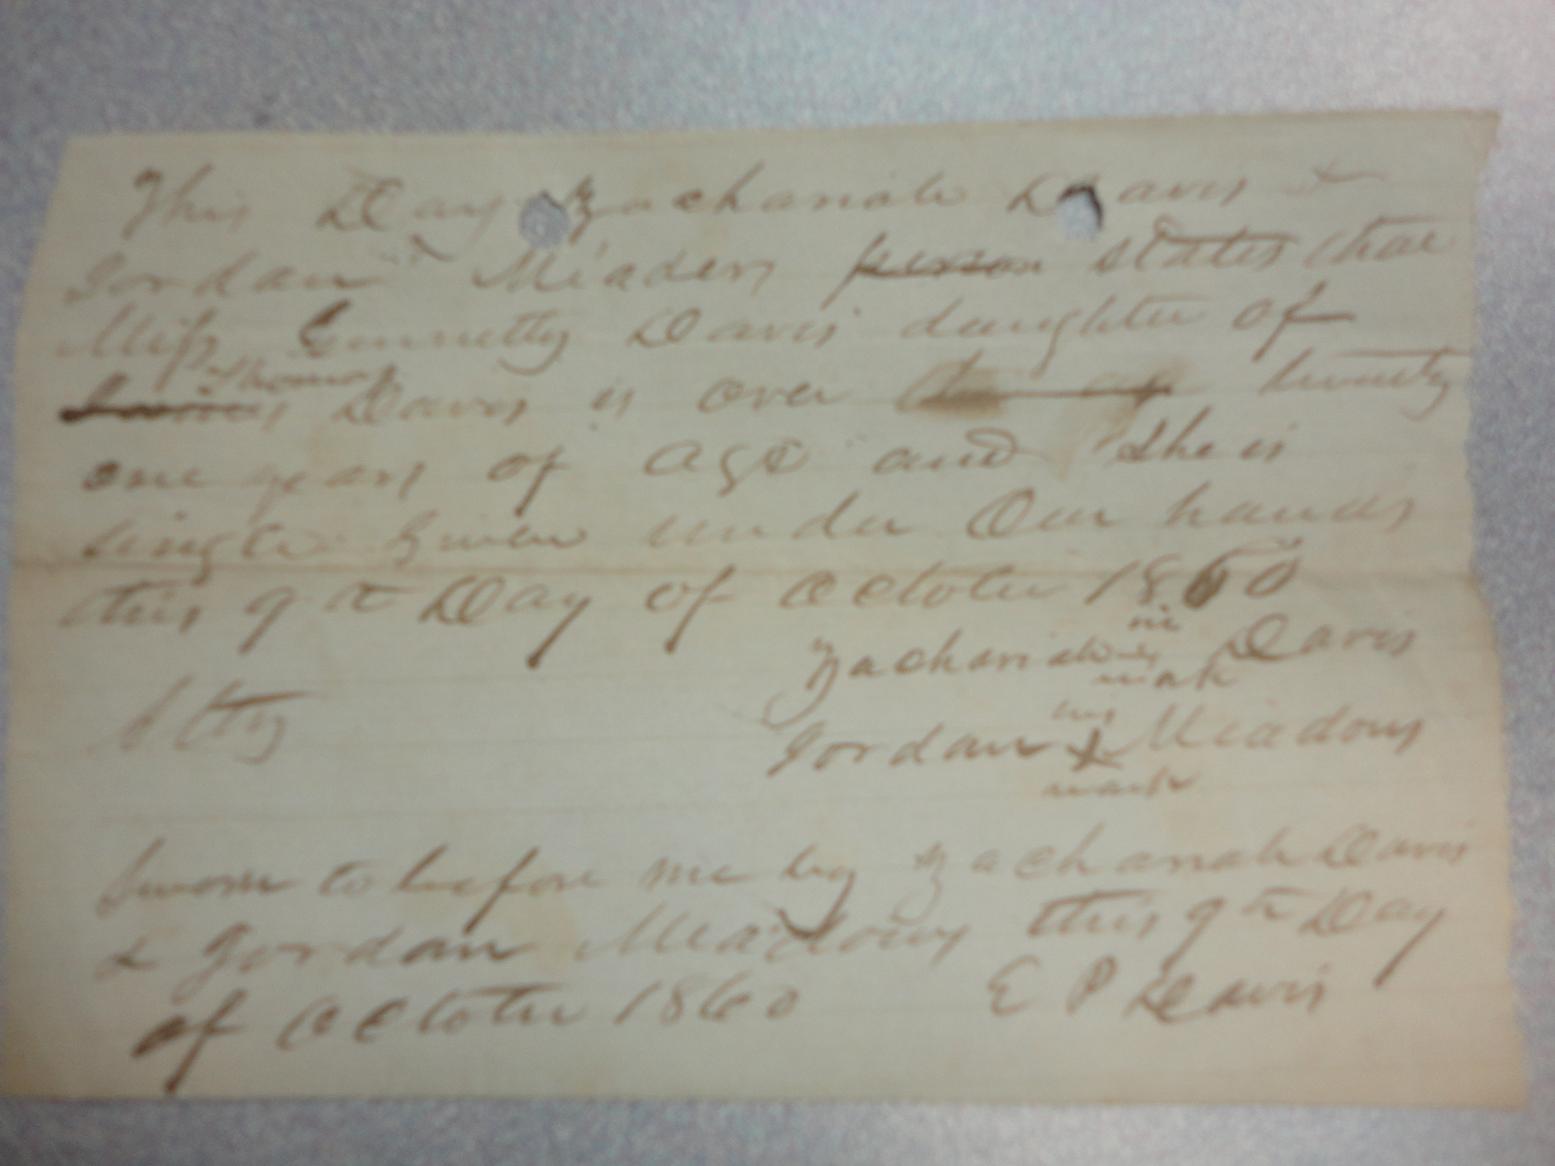 This Day Zachariah Davis &
Jordan Meaders person states that
Miss Davis daughter of
Thomas
James Davis is over twenty
one years of age and she is
single Given under Our hands
this 9th Day of October 1860
his
Zachariah Davis
mark
Attes
his
Jordan X Meadows
mark
Sworn to before me by Zachariah Davis
& Jordan Meadows this 9th Day
of October 1860 E P Davis